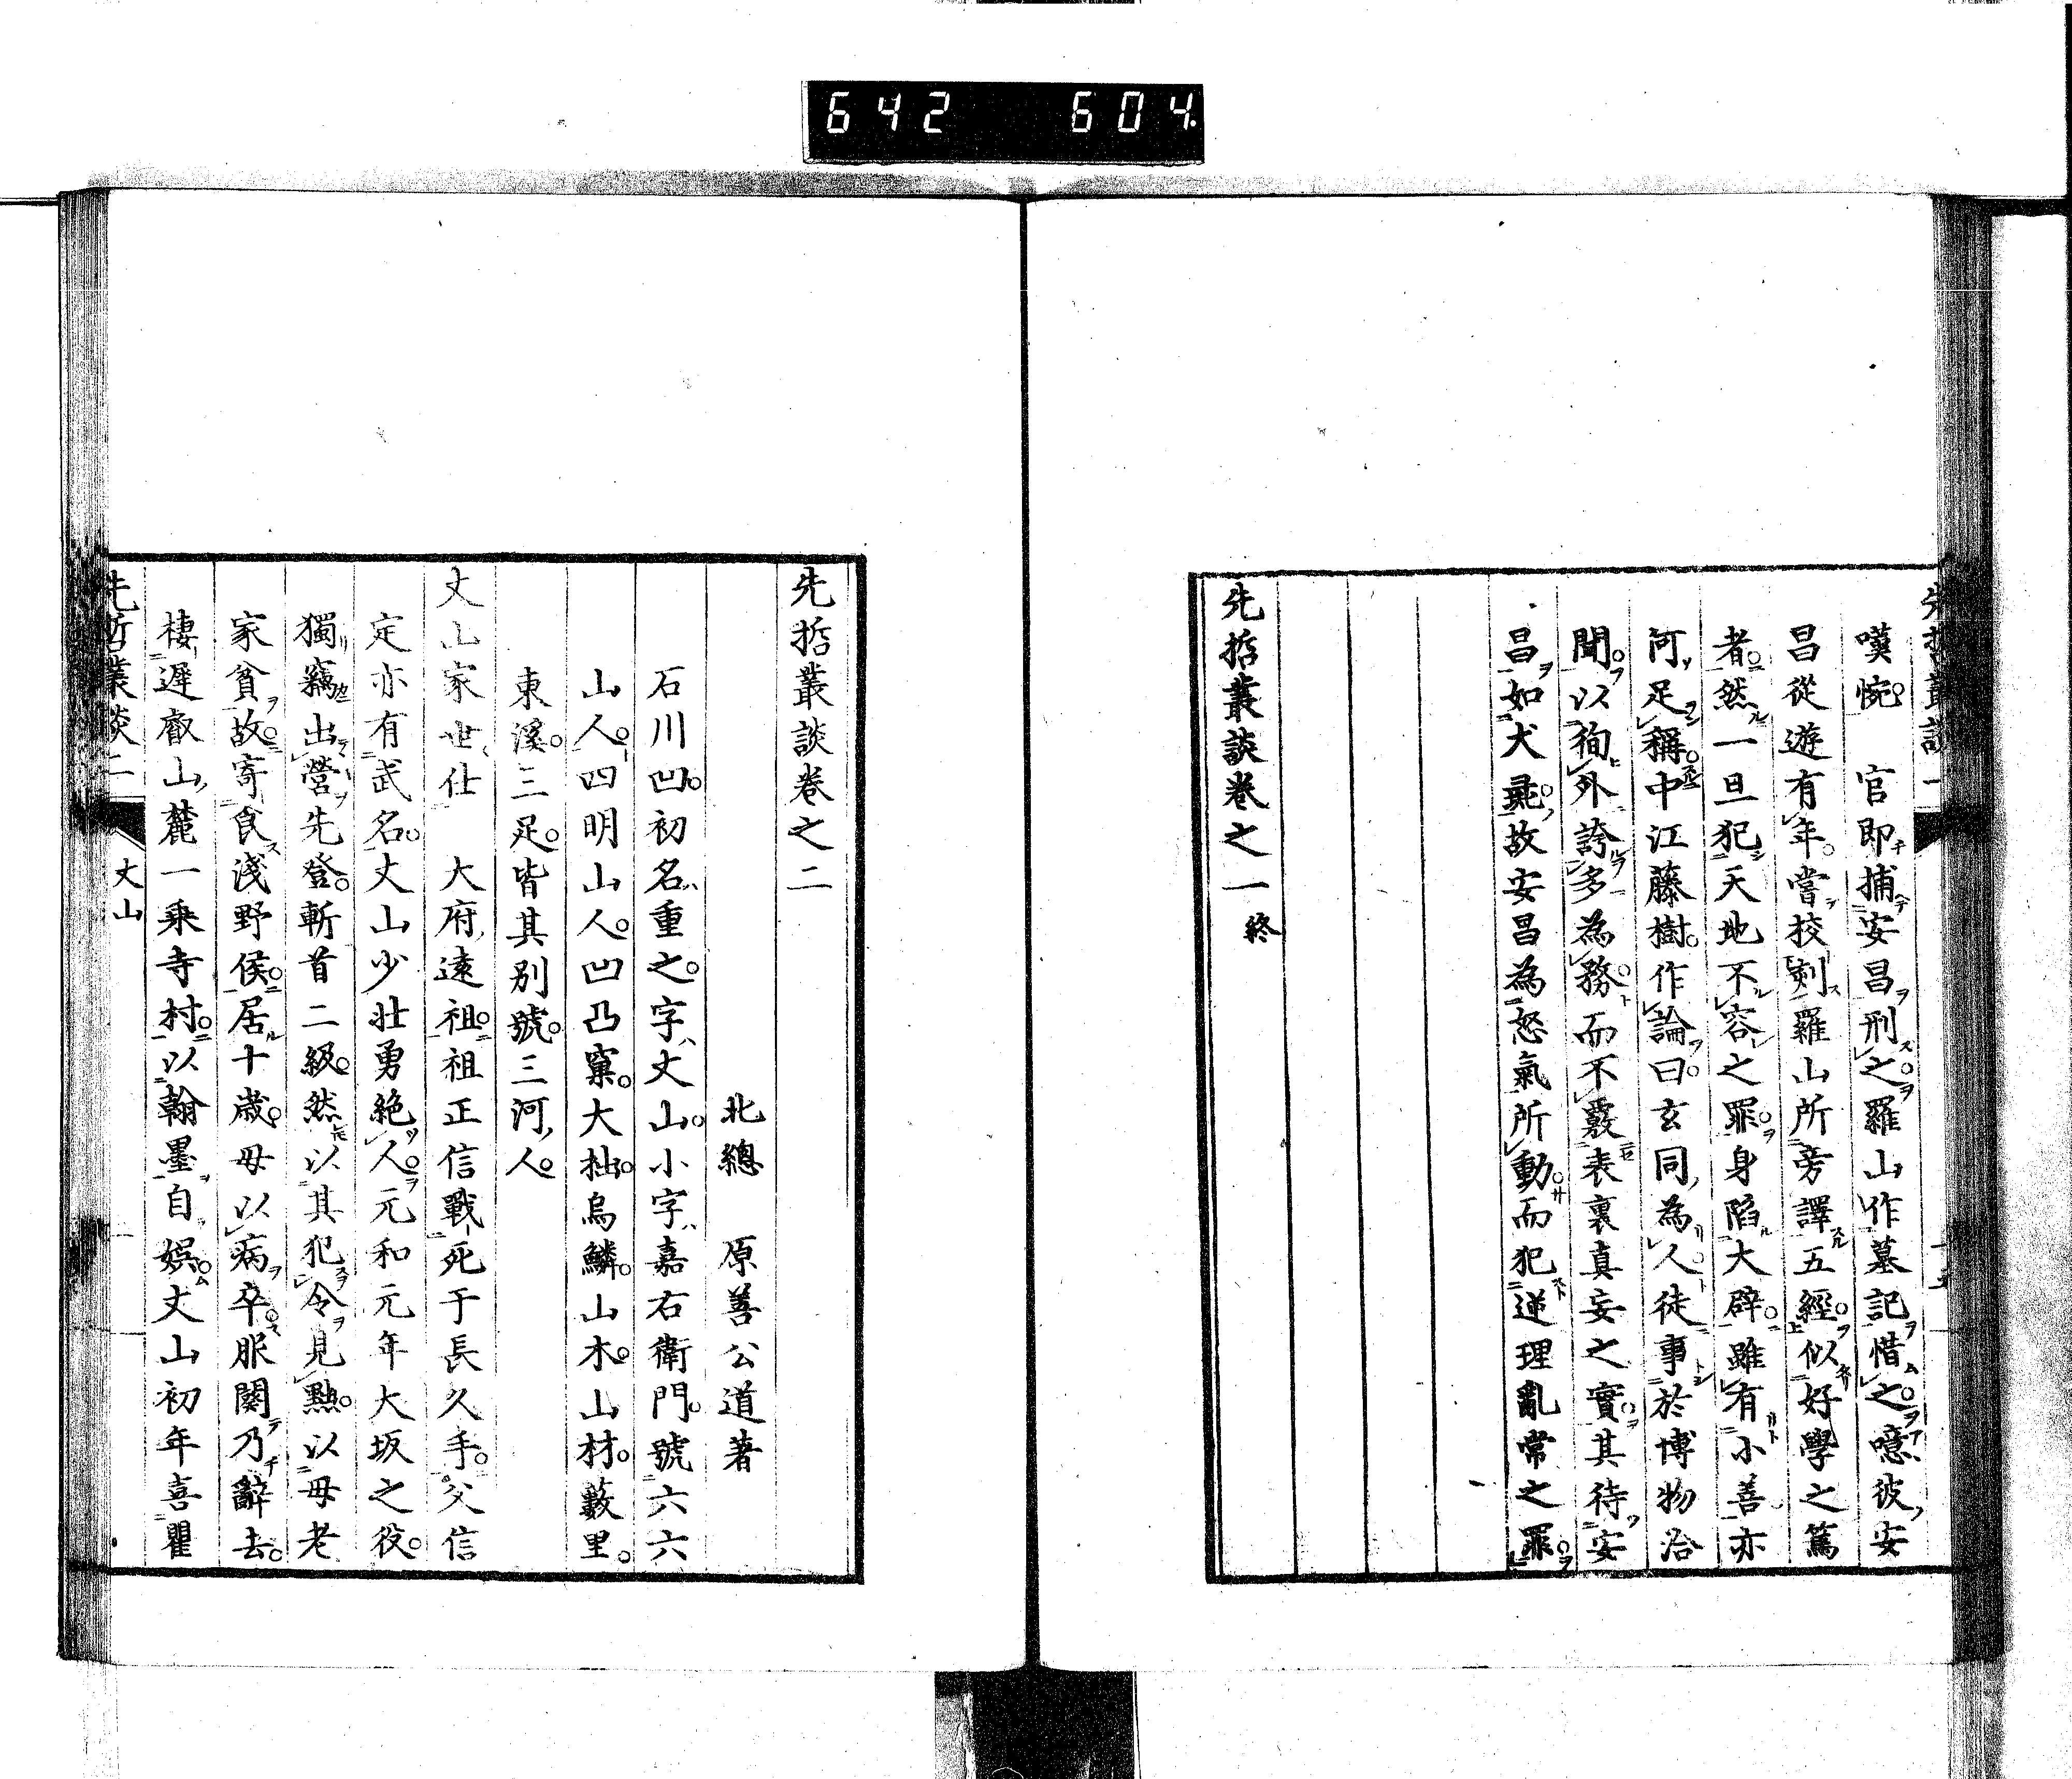 642 604
嘆惋　官即捕安昌刑之羅山作墓記惜之噫彼安
昌從遊有年嘗校剡羅山所旁譯五經似好學之篤
者然一旦犯天地不容之罪身陷大辟雖有小善亦
何足稱中江藤樹作論曰玄同為人徒事於博物洽
聞以徇外誇多為務而不覈表裏真妄之實其待安
昌如犬彘故安昌為怒氣所動而犯逆理亂常之罪
先哲叢談卷之一終
先哲叢談卷之二
北總　原善公道著
石川凹初名重之字丈山小字嘉右衛門號六六
山人四明山人凹凸窠大拙烏鱗山木山材藪里
東溪三足皆其別號三河人
丈山家世仕　大府遠祖祖正信戰死于長久手父信
定亦有武名丈山少壯勇絶人元和元年大坂之役
獨竊出營先登斬首二級然以其犯令見黜以母老
家貧故寄食淺野侯居十歲母以病卒服闋乃辭去
棲遲叡山麓一乘寺村以翰墨自娯丈山初年喜瞿
先哲叢談二　丈山